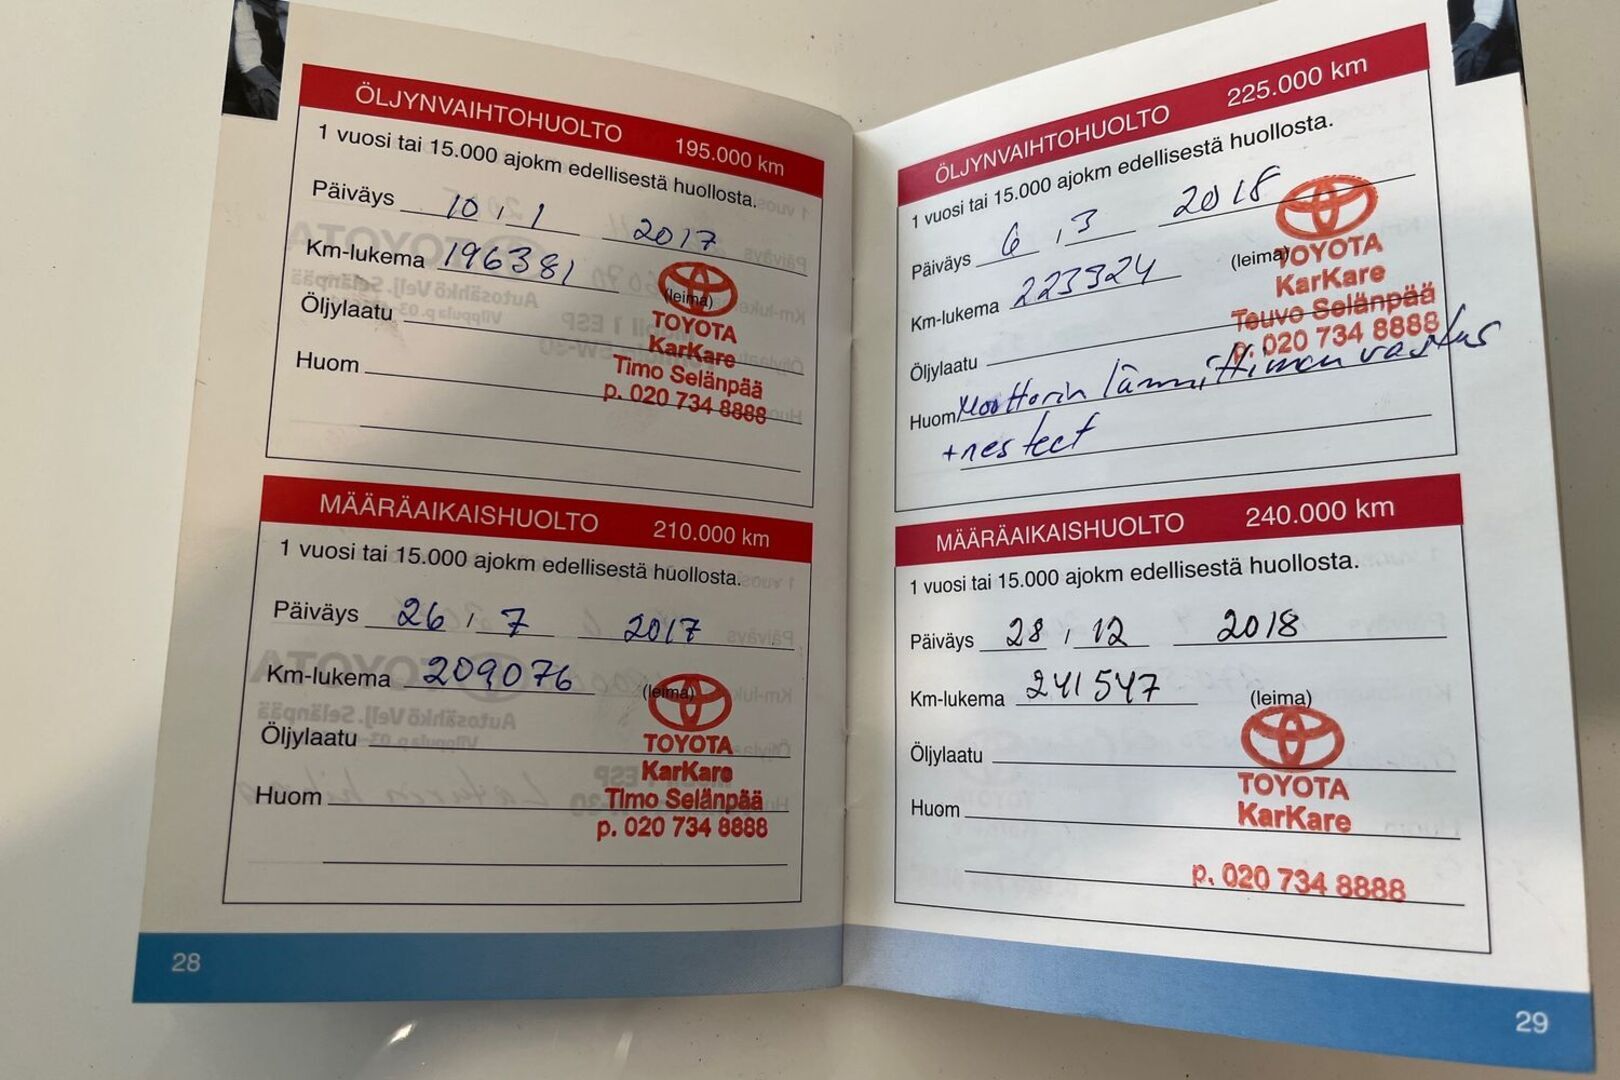 ÖLJYNVAIHTOHUOLTO 195.000 km
1 vuosi tai 15.000 ajokm edellisestä huollosta.
Päiväys 10 , 1 2017
Km-lukema 196381
(leima)
Öljylaatu
TOYOTA
KarKare
Huom
Timo Selänpää
p. 020 734 8888
MÄÄRÄAIKAISHUOLTO 210.000 km
1 vuosi tai 15.000 ajokm edellisestä huollosta.
Päiväys 26 , 7 2017
Km-lukema 209076
(leima)
Öljylaatu
TOYOTA
KarKare
Huom
Timo Selänpää
p. 020 734 8888
28
ÖLJYNVAIHTOHUOLTO 225.000 km
1 vuosi tai 15.000 ajokm edellisestä huollosta.
Päiväys 6 , 3 2018
(leima)
TOYOTA
Km-lukema 223924
KarKare
Teuvo Selänpää
Öljylaatu
p. 020 734 8888
Huom Moottorin lämmittimen vastus
+nesteet
MÄÄRÄAIKAISHUOLTO 240.000 km
1 vuosi tai 15.000 ajokm edellisestä huollosta.
Päiväys 28 , 12 2018
Km-lukema 241547
(leima)
Öljylaatu
TOYOTA
KarKare
Huom
p. 020 734 8888
29